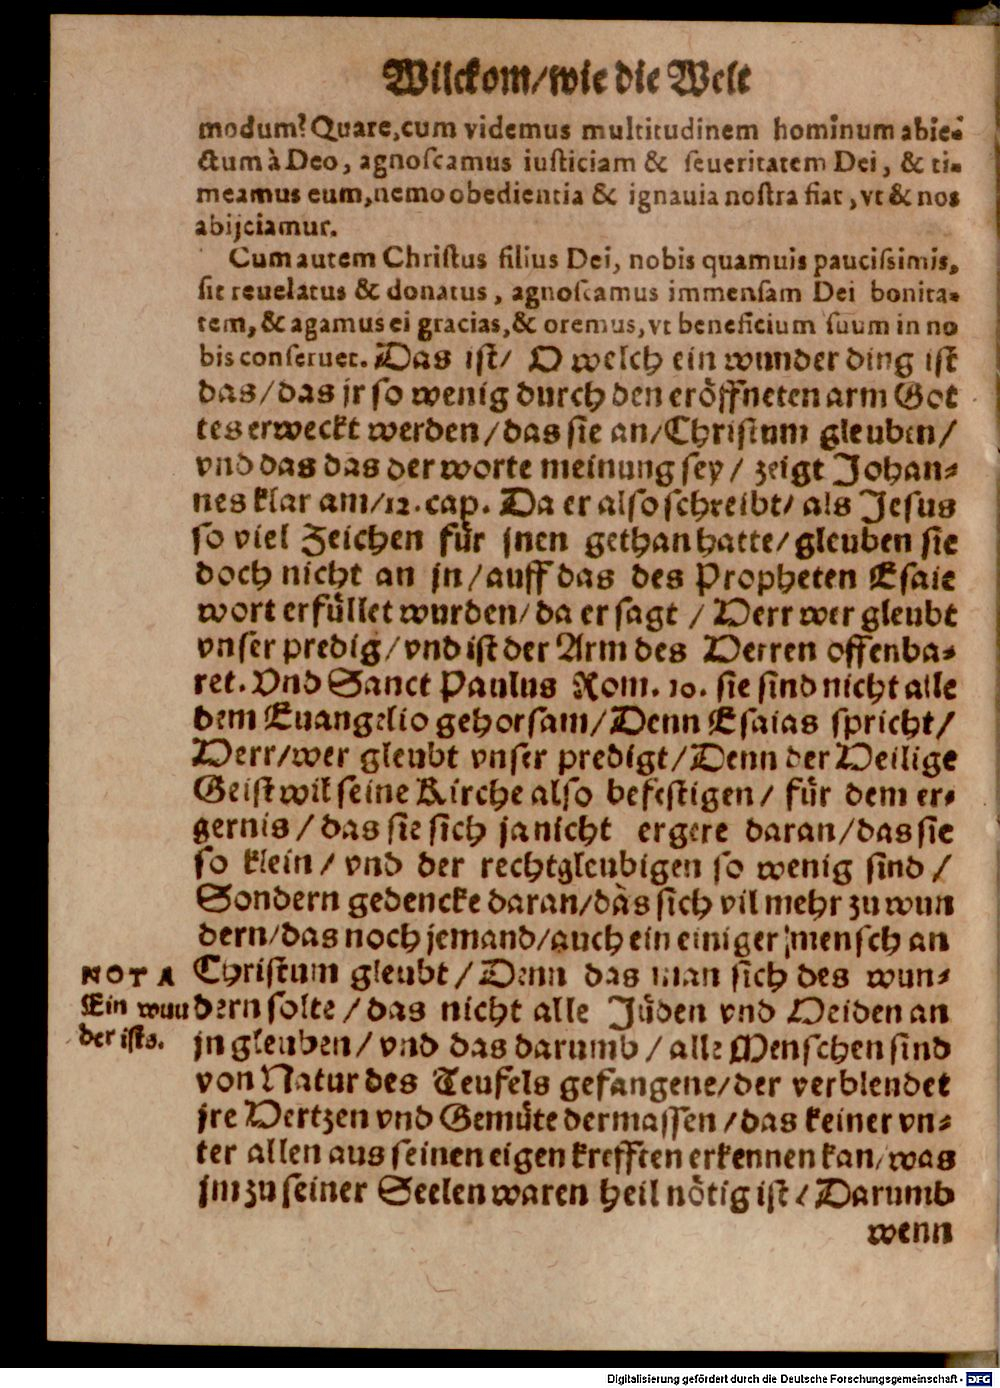 Wilckom/wie die Welt
modum? Quare, cum videmus multitudinem hominum abie-
ctum à Deo, agnoscamus iusticiam & seueritatem Dei, & ti-
meamus eum, nemo obedientia & ignauia nostra fiat, vt & nos
abijciamur.
Cum autem Christus filius Dei, nobis quamuis paucissimis,
sit reuelatus & donatus, agnoscamus immensam Dei bonita-
tem, & agamus ei gracias, & oremus, vt beneficium suum in no
bis conseruet. Das ist/ O welch ein wunder ding ist
das/das jr so wenig durch den eröffneten arm Got
tes erweckt werden/das sie an/Christum gleuben/
vnd das das der worte meinung sey/ zeigt Johan-
nes klar am/12. cap. Da er also schreibt/ als Jesus
so viel Zeichen für jnen gethan hatte/gleuben sie
doch nicht an jn/auff das des Propheten Esaie
wort erfüllet wurden/da er sagt / Herr wer gleubt
vnser predig/vnd ist der Arm des Herren offenba-
ret. Vnd Sanct Paulus Rom. 10. sie sind nicht alle
dem Euangelio gehorsam/Denn Esaias spricht/
Herr/wer gleubt vnser predigt/Denn der Heilige
Geist wil seine Kirche also befestigen/ für dem er-
gernis/das sie sich ja nicht ergere daran/das sie
so klein/ vnd der rechtgleubigen so wenig sind/
Sondern gedencke daran/das sich vil mehr zu wun
dern/das noch jemand/auch ein einiger mensch an
NOTA
Ein wun
der ists.
Christum gleubt/Denn das man sich des wun-
dern solte/das nicht alle Jüden vnd Heiden an
jn gleuben/vnd das darumb/alle Menschen sind
von Natur des Teufels gefangene/der verblendet
jre Hertzen vnd Gemüte dermassen/das keiner vn-
ter allen aus seinen eigen krefften erkennen kan/was
jm zu seiner Seelen waren heil nötig ist/Darumb
wenn
Digitalisierung gefördert durch die Deutsche Forschungsgemeinschaft - DFG